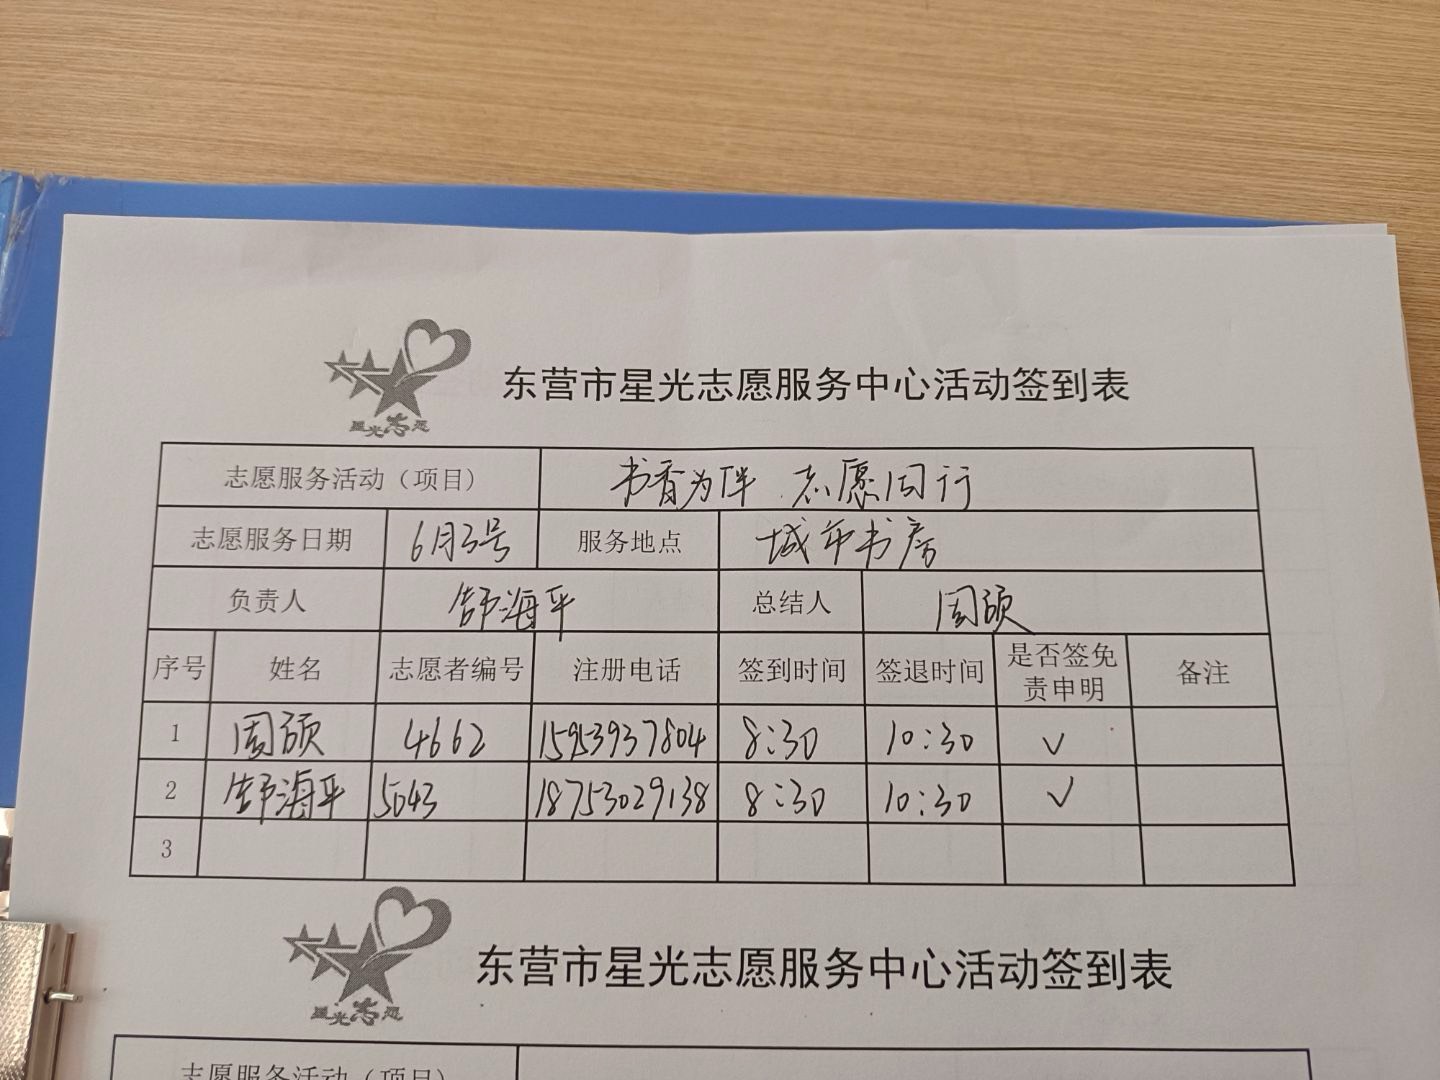 星光志愿
东营市星光志愿服务中心活动签到表
志愿服务活动（项目） 书香为伴 志愿同行
志愿服务日期 6月3号 服务地点 城市书房
负责人 舒海平 总结人 周硕
序号 姓名 志愿者编号 注册电话 签到时间 签退时间 是否签免责申明 备注
1 周硕 4662 15953937804 8:30 10:30 ✓
2 舒海平 5043 18753029138 8:30 10:30 ✓
3
星光志愿
东营市星光志愿服务中心活动签到表
志愿服务活动（项目）